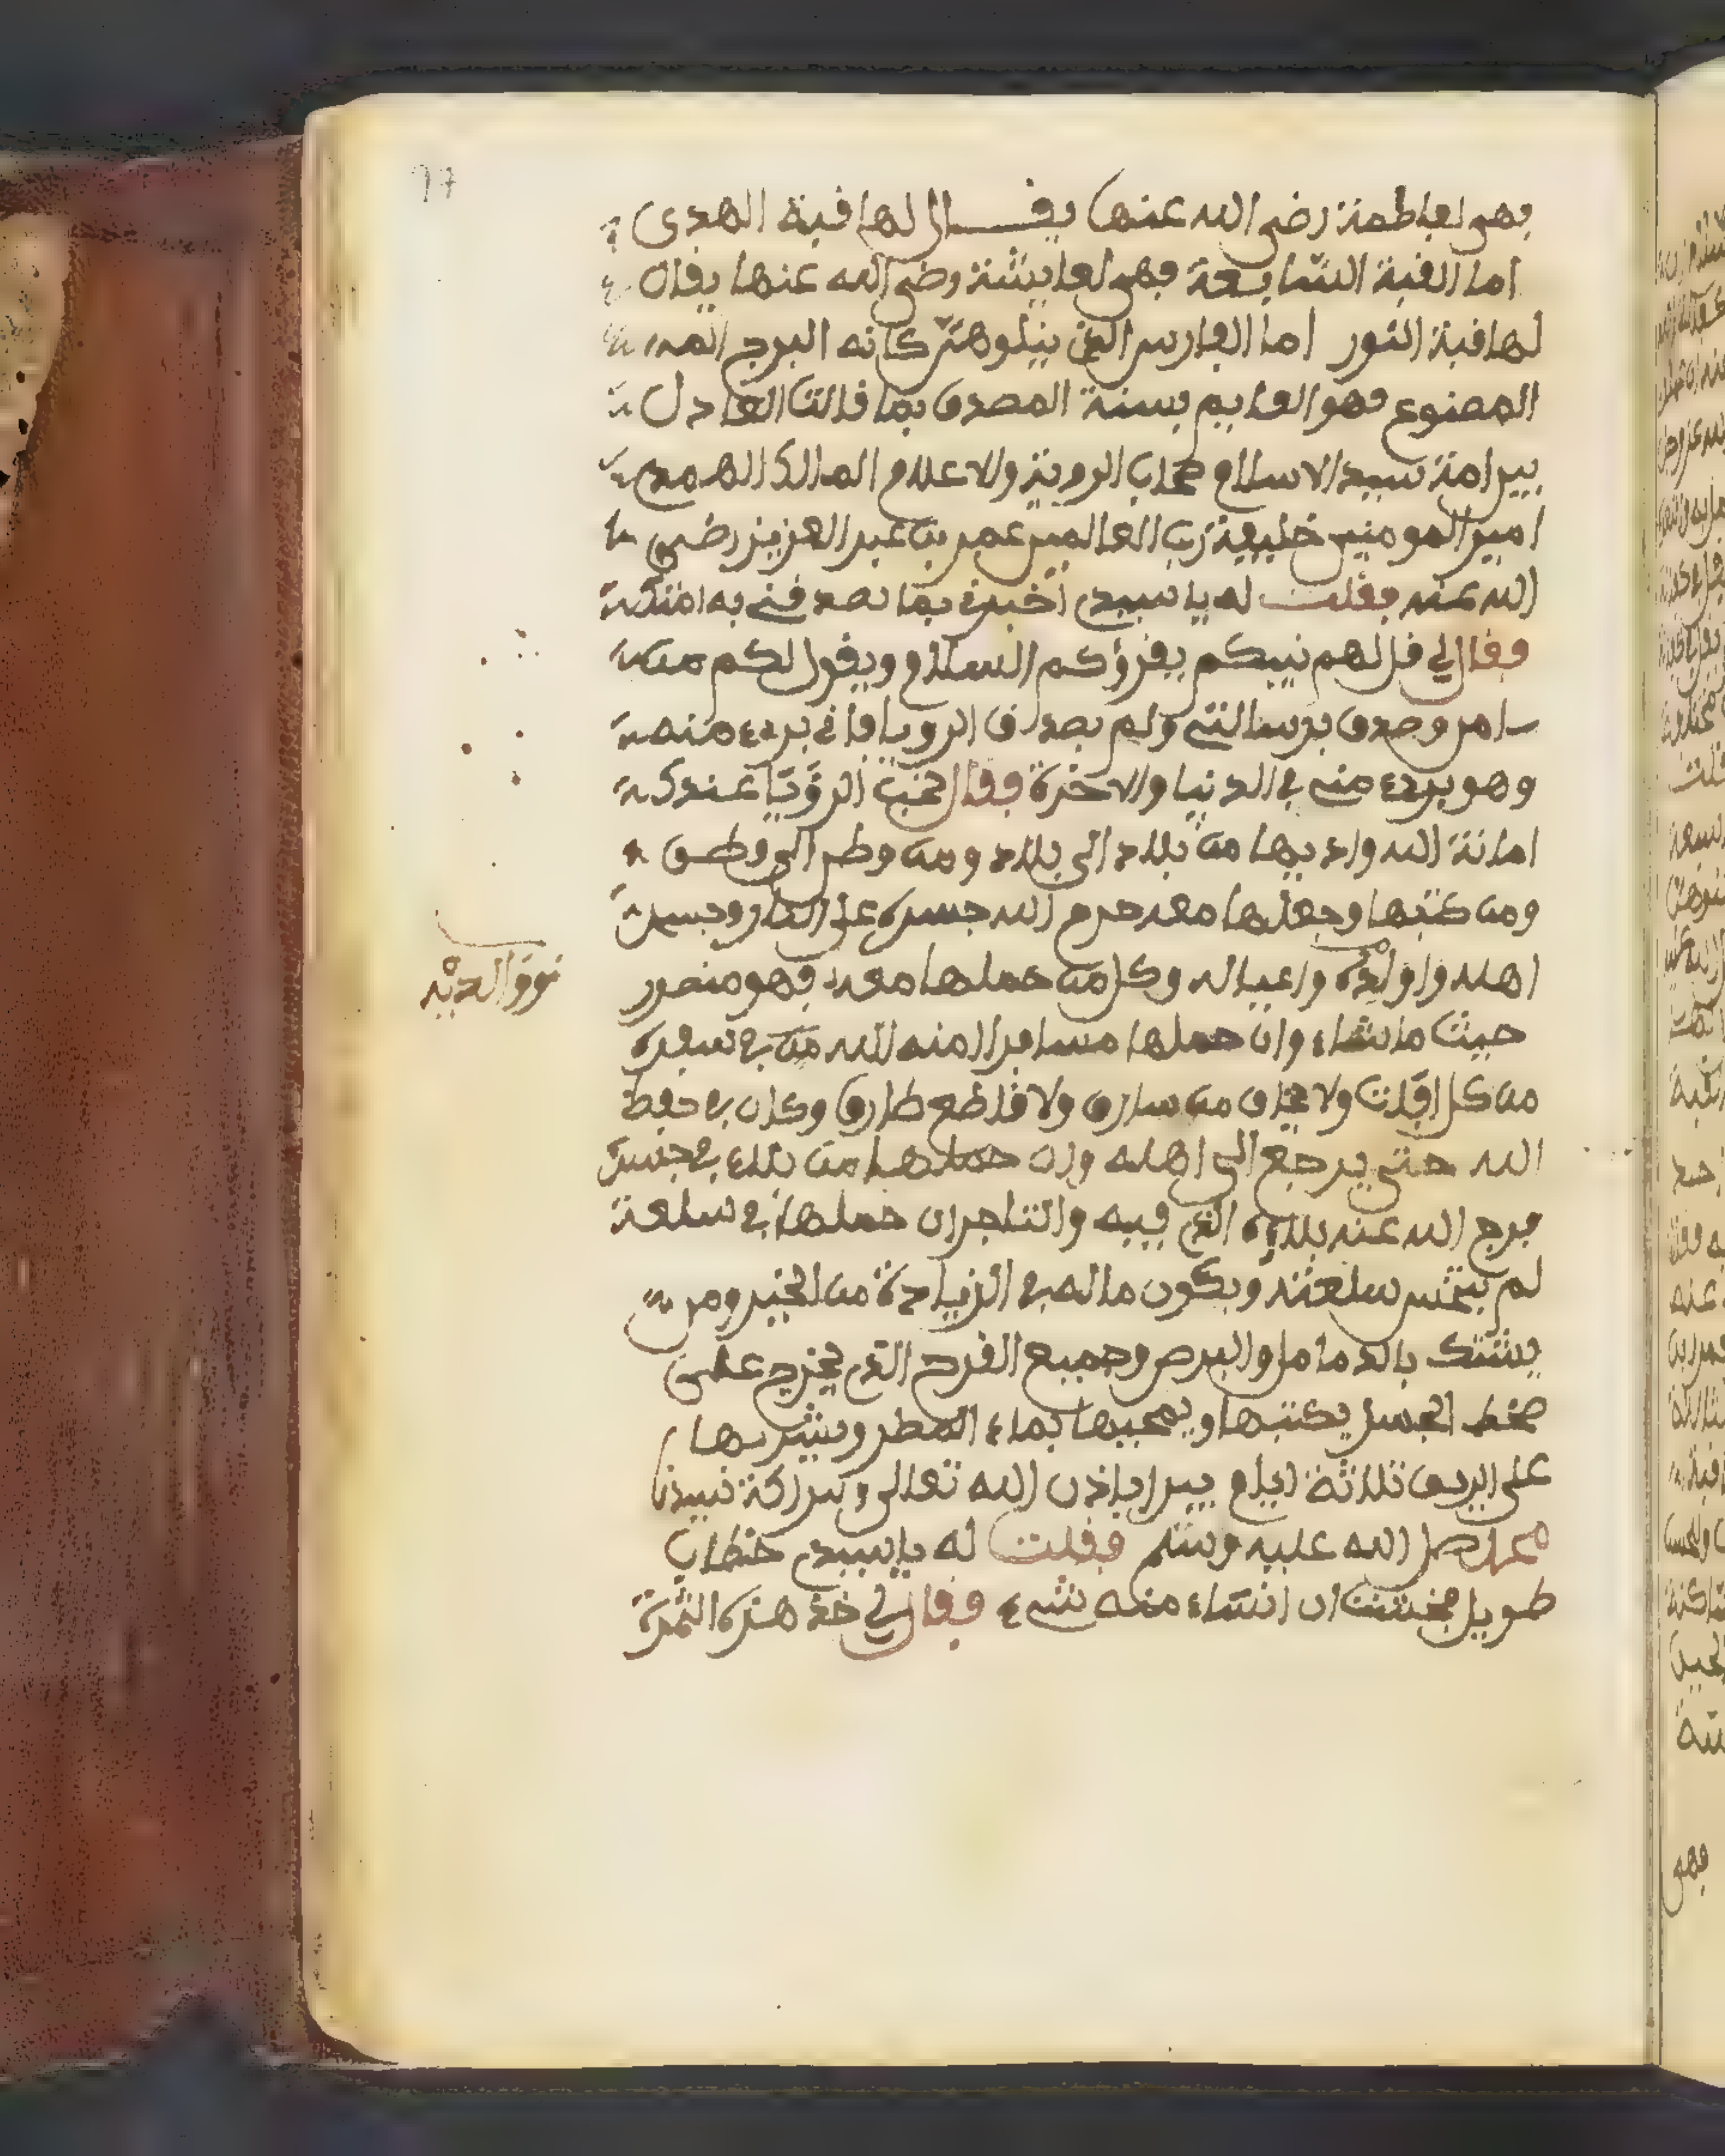 فهي لفاطمة رضي الله عنها يقال لها قبة الهدى
اما القبة السابعة فهي لعايشة رضي الله عنها يقال
لها قبة النور اما الفارس الذي يتلوهن كانه البرج
المصنوع فهو القايم بسنة المصدق بما قالت العادل
بين امة سيد الاسلام صحاب الروية والاعلام المالك
امير المومنين خليفة رب العالمين عمر بن عبد العزيز رضي
الله عنه فقلت له يا سيدي اخبرني بما تصدقني به امتك
فقال لي قل لهم نبيكم يقرؤكم السلام ويقول لكم من
امن وصدق برسالتي ولم يصدق الرويا فاني بريء منه
وهو بريء مني في الدنيا والاخرة فقال الرؤيا عندك
امانة الله واد بها من بلاد الى بلاد ومن وطن الى وطن
ومن كتبها وجعلها معه حرم الله جسده على النار وجسد
اهله واولاده واعياله وكل من حملها معه فهو منصور
حيث ما شاء وان حملها مسافرا امنه الله من في سفره
من كل افات ولا يخاف من سارق ولا قاطع طارق وكان في حفظ
الله حتى يرجع الى اهله وان حملها من بلاء في جنسه
فرج الله عنه بلاؤه الذي فيه والتاجر ان حملها في سلعة
لم سلعته ويكون ماله في الزيادة من الخير ومن
يشتك بالدمامل والبرص وجميع القرح الذي يخرج على
الجسد يكتبها ويمحيها بماء المطر ويشربها
على الريق ثلاثة ايام يبرا باذن الله تعالى وببراكة نبينا
محمد صل الله عليه وسلم فقلت له يا سيدي خطاب
طويل فخشيت ان انساء منه شيء فقال لي خذ هذه الثمرة
97